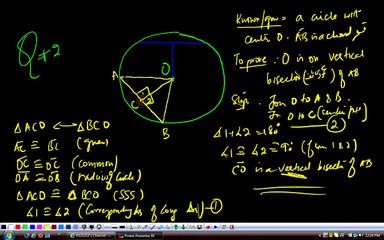 Q # 2
Known/given = a circle with
centre O. AB is a chord
To prove : O is on vertical
bisector of AB
Sign. Join O to A & B.
Join O to C (centre pt)
∠1+∠2=180° ②
∠1 ≅ ∠2 = 90° (from 1 & 2)
CO is a vertical bisector of AB
A
O
C
1
2
B
△ACO ⟷ △BCO
AC ≅ BC (given)
OC ≅ OC (common)
OA ≅ OB (radius of circle)
△ACO ≅ △BCO (SSS)
∠1 ≅ ∠2 (Corresponding ∠s of cong △s) — ①
12:26 PM